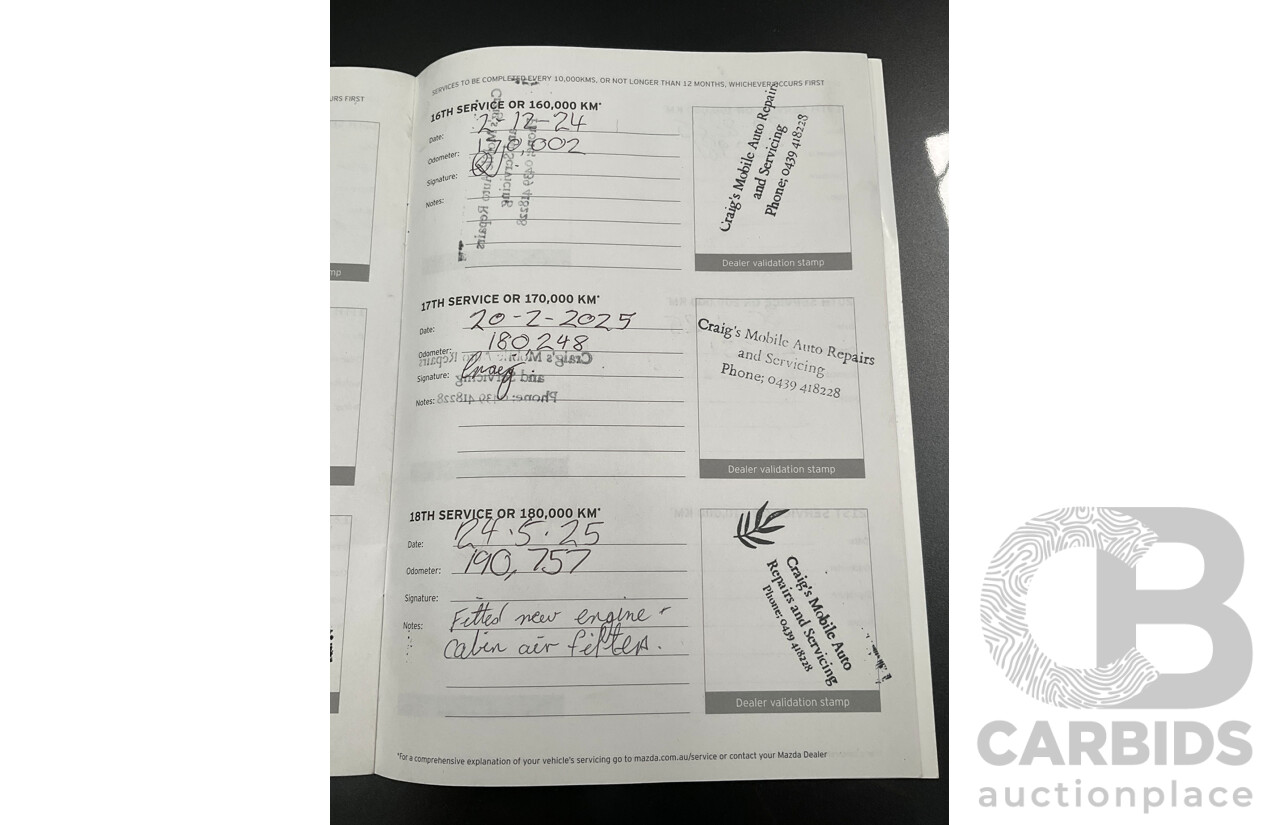 URS FIRST
mp
SERVICES TO BE COMPLETED EVERY 10,000KMS, OR NOT LONGER THAN 12 MONTHS, WHICHEVER OCCURS FIRST
16TH SERVICE OR 160,000 KM*
Date: 2-12-24
Odometer: 170,002
Signature:
Notes:
Craig's Mobile Auto Repairs
and Servicing
Phone; 0439 418228
Dealer validation stamp
17TH SERVICE OR 170,000 KM*
Date: 20-2-2025
Odometer: 180248
Signature: Craig
Notes:
Craig's Mobile Auto Repairs
and Servicing
Phone; 0439 418228
Dealer validation stamp
18TH SERVICE OR 180,000 KM*
Date: 24.5.25
Odometer: 190,757
Signature:
Notes: Fitted new engine +
cabin air filters.
Craig's Mobile Auto
Repairs and Servicing
Phone: 0439 418228
Dealer validation stamp
*For a comprehensive explanation of your vehicle's servicing go to mazda.com.au/service or contact your Mazda Dealer
CB
CARBIDS
auctionplace